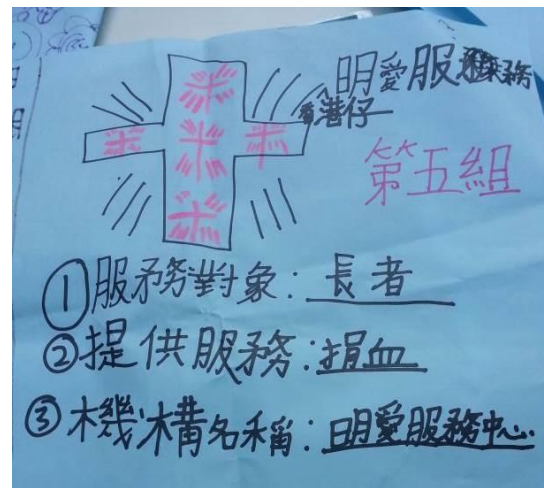 明愛服務
香港仔
第五組
①服務對象:長者
②提供服務:捐血
③機構名稱:明愛服務中心.